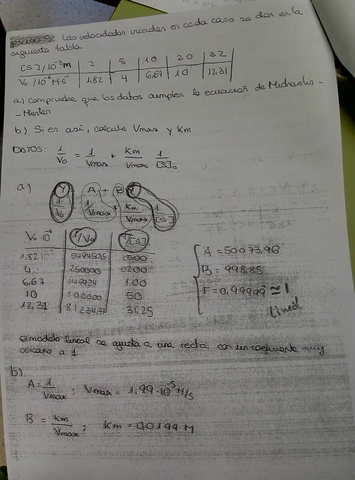 Las velocidades iniciales en cada caso se dan en la
siguiente tabla
[S]/10⁻³M 2 5 10 20 32
V₀/10⁻⁶M·s⁻¹ 1.82 4 6,67 10 12,31
a) compruebe que los datos cumplen la ecuación de Michaelis-
-Menten
b) Si es así, calcule Vmax y Km
DATOS: 1/V₀ = 1/Vmax + Km/Vmax 1/[S]₀
a) Y A + B X
1/V₀ 1/Vmax Km/Vmax 1/[S]
V₀·10⁻⁶ 1/V₀ 1/[S]
1.82·10⁻⁶ 500
4 250000 200
6,67 100
10 100000 50
12,31 81234,77 31,25
A = 50073,96
B = 998,85
r = 0,99999 ≃ 1
lineal
El modelo lineal se ajusta a una recta con un coeficiente muy
cercano a 1
b).
A = 1/Vmax ; Vmax = 1,99·10⁻⁵ M/s
B = Km/Vmax ; Km = 0,0199 M